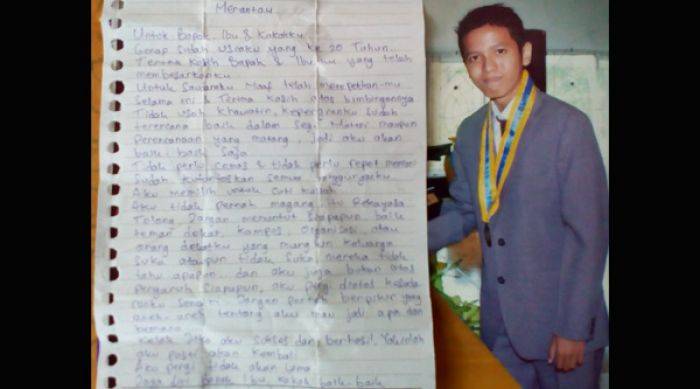 Merantau
Untuk Bapak, Ibu & Kakakku
Genap sudah usiaku yang ke 20 Tahun..
Terima Kasih Bapak & Ibuku yang telah
membesarkanku
Untuk Saudaraku Maaf telah merepotkan-mu
Selama ini & Terima Kasih atas bimbingannya
Tidak usah khawatir, kepergianku sudah
terencana baik dalam segi Materi maupun
Perencanaan yang matang, jadi aku akan
baik-baik saja
Tidak perlu cemas & tidak perlu repot
Sudah semua
Aku memilih untuk Cuti kuliah
Aku tidak pernah magang, itu Rekayasa
Tolong Jangan menuntut siapapun baik
teman dekat, kampus, organisasi atau
orang dekatku yang mungkin keluarga
suka ataupun tidak suka mereka tidak
tahu apapun... dan aku juga bukan atas
Pengaruh siapapun, aku pergi diatas
Jangan pernah berpikir yang
aneh-aneh tentang aku mau jadi apa dan
kemana
Kelak Jika aku sukses dan berhasil,
aku pasti akan kembali
Aku pergi tidak akan lama
Jaga diri Bapak, Ibu, kakak baik-baik